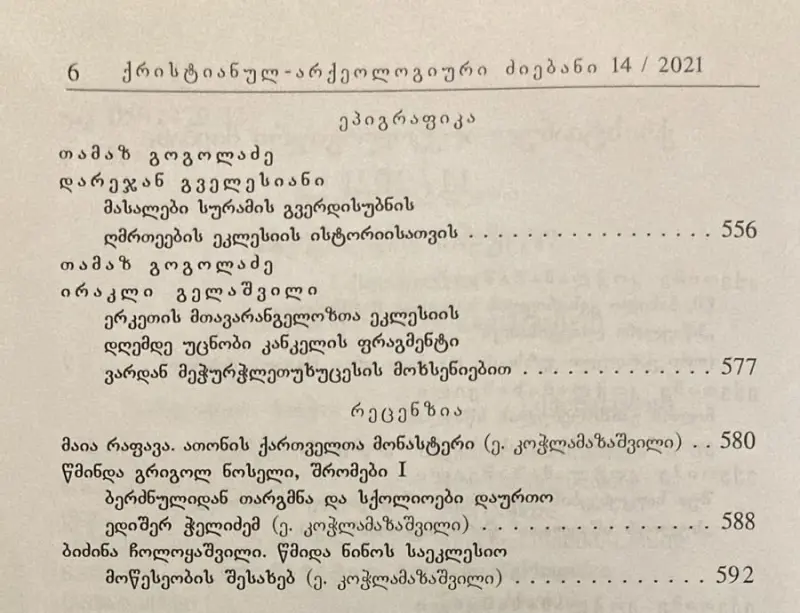 6 ქრისტიანულ-არქეოლოგიური ძიებანი 14 / 2021
ეპიგრაფიკა
თამაზ გოგოლაძე
დარეჯან გველესიანი
მასალები სურამის გვერდისუბნის
ღმრთეების ეკლესიის ისტორიისათვის . . . . . . . . . . . . . . . . . 556
თამაზ გოგოლაძე
ირაკლი გელაშვილი
ერკეთის მთავარანგელოზთა ეკლესიის
დღემდე უცნობი კანკელის ფრაგმენტი
ვარდან მეჭურჭლეთუხუცესის მოხსენიებით . . . . . . . . . . . . . 577
რეცენზია
მაია რაფავა. ათონის ქართველთა მონასტერი (ე. კოჭლამაზაშვილი) . . 580
წმინდა გრიგოლ ნოსელი, შრომები I
ბერძნულიდან თარგმნა და სქოლიოები დაურთო
ედიშერ ჭელიძემ (ე. კოჭლამაზაშვილი) . . . . . . . . . . . . . . . . 588
ბიძინა ჩოლოყაშვილი. წმიდა ნინოს საეკლესიო
მოწესეობის შესახებ (ე. კოჭლამაზაშვილი) . . . . . . . . . . . . . . 592